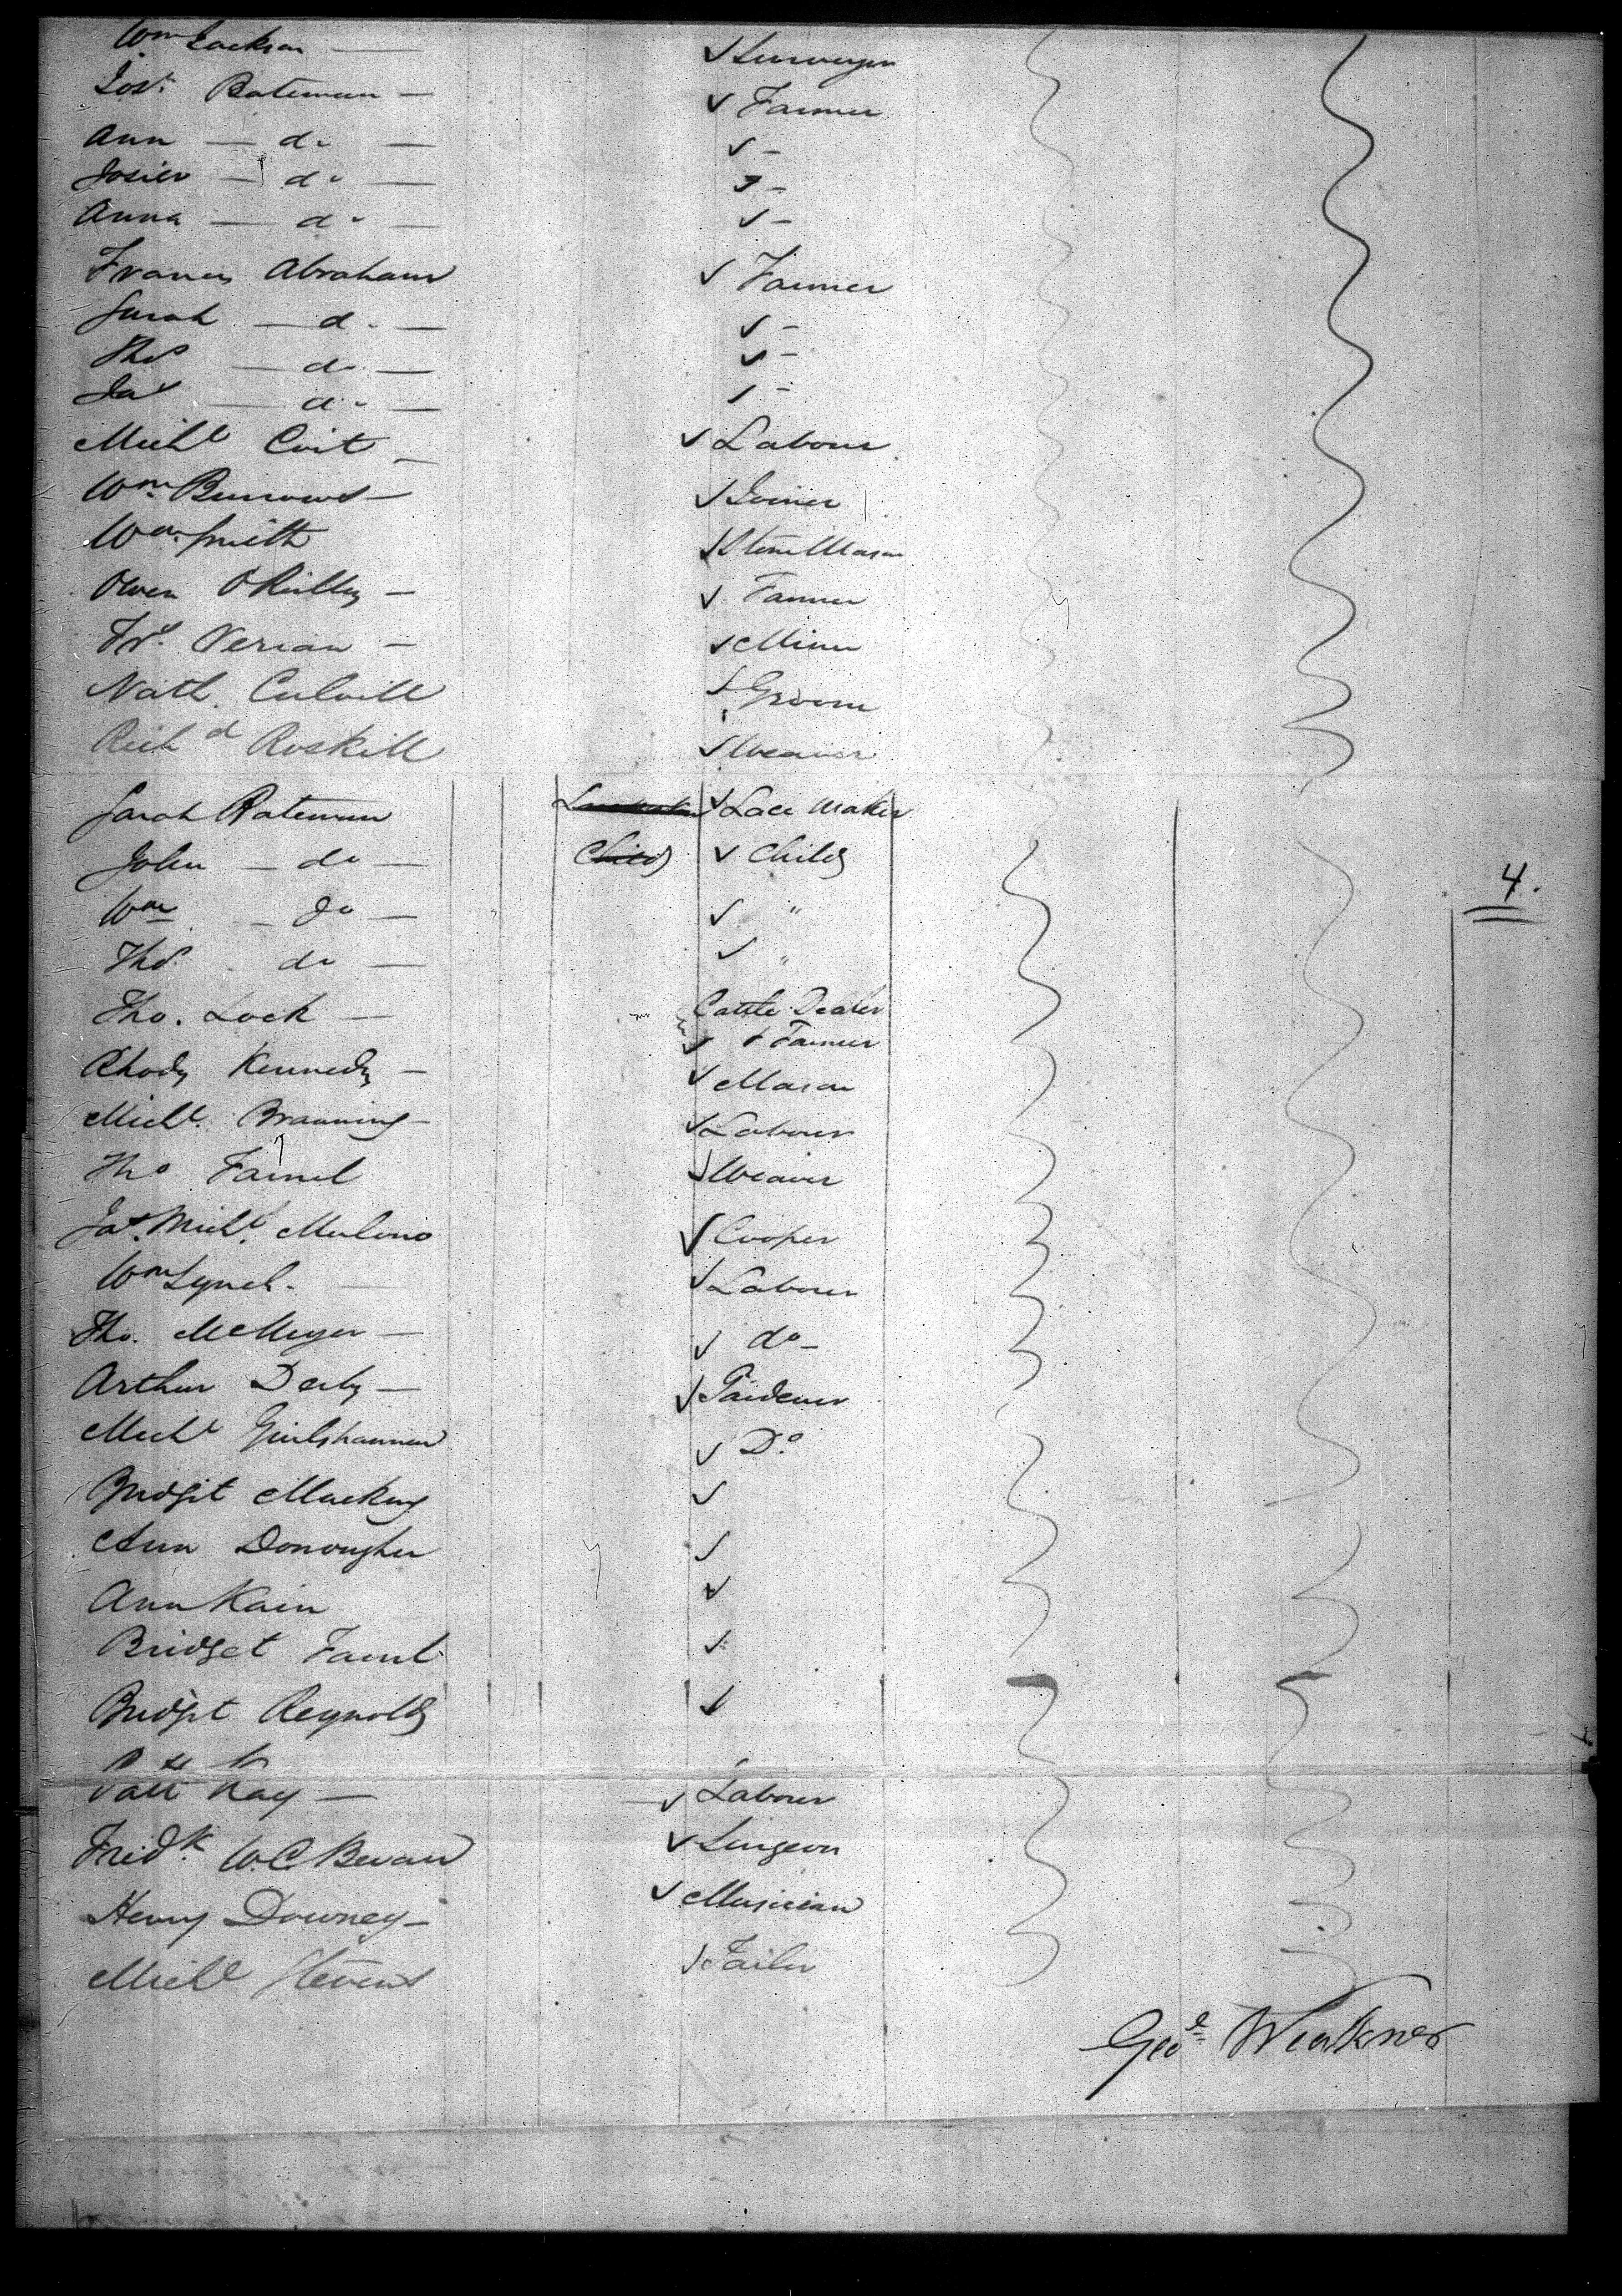 Wm Jackson — Surveyor
Jos. Bateman — Farmer
Ann — do — -
Josier — do — -
Anna — do — -
Francis Abraham Farmer
Sarah — do — -
Thos — do — -
Jas — do — -
Michl Coit — Labour
Wm. Burrows — Joiner
Wm. Smith Stone Mason
Owen O'Reilley — Farmer
Frs. Verian — Miner
Nath. Culvill Groom
Richd Roskill Weaver
Sarah Bateman Lace Maker
John — do — Child Child
Wm — do — "
Thos do — "
Tho. Lock — Cattle Dealer
& Farmer
Rhody Kennedy — Mason
Michl. Branning — Labour
Tho Farrel Weaver
Jas. Michl. Mulono Cooper
Wm Lynch. — Labour
Tho. McMeyer — do -
Arthur Derby — Gardener
Michl Do
Bridgit Mackey
Ann Donougher
Ann Kain
Bridget Farrel
Bridgit Reynolds
Patt Kay — Labour
Fredk. W.C. Bevan Surgeon
Henry Downey — Musician
Michl Stevens Tailor
4.
Geo